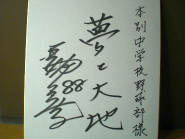 本別中学校野球部様
夢と大地
88